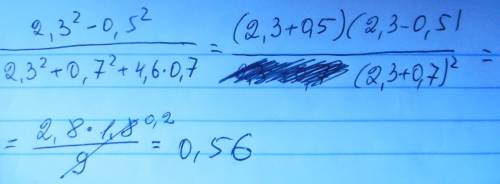 (2,3² - 0,5²) / (2,3² + 0,7² + 4,6 · 0,7) = (2,3 + 0,5)(2,3 - 0,5) / (2,3 + 0,7)² =
= (2,8 · 1,8 0,2) / 9 = 0,56